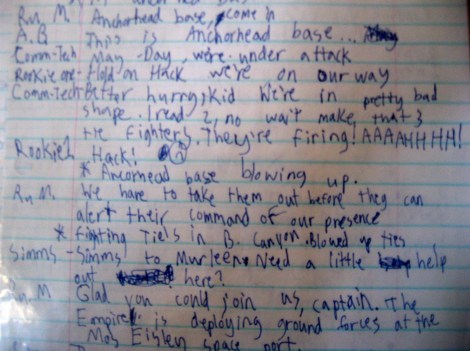 Ru. M. Anchorhead base, come in
A.B. This is Anchorhead base...
Comm-Tech May-Day, we're under attack
Rookie one - Hold on Hack we're on our way
Comm-Tech - Better hurry, kid We're in pretty bad
shape. I read 2, no wait make that 3
tie fighters. They're firing! AAAAHHHH!
Rookie 1 Hack!
* Ancorhead base blowing up.
Ru M. We have to take them out before they can
alert their command of our presence
* fighting Tie's in B. Canyon. Blowed up ties
Simms - Simms to Murleen. Need a little help
out here?
Ru. M Glad you could join us, captain. The
Empire is deploying ground forces at the
Mos Eisley space port.